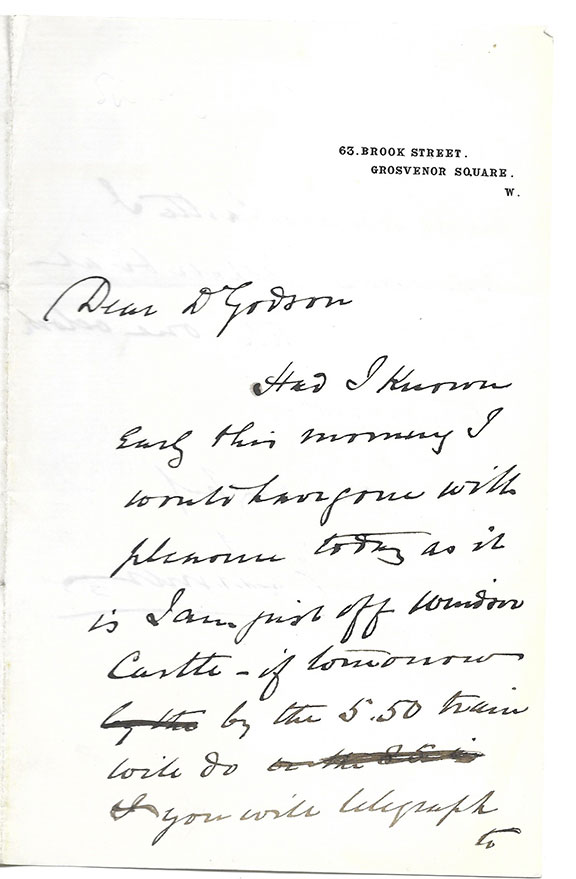 63.BROOK STREET.
GROSVENOR SQUARE.
W.
Dear Dr Godson
Had I Known
Early this morning I
would have gone with
pleasure today as it
is I am just off Windsor
Castle - if tomorrow
by the by the 5.50 train
will do or the
I you will telegraph
to